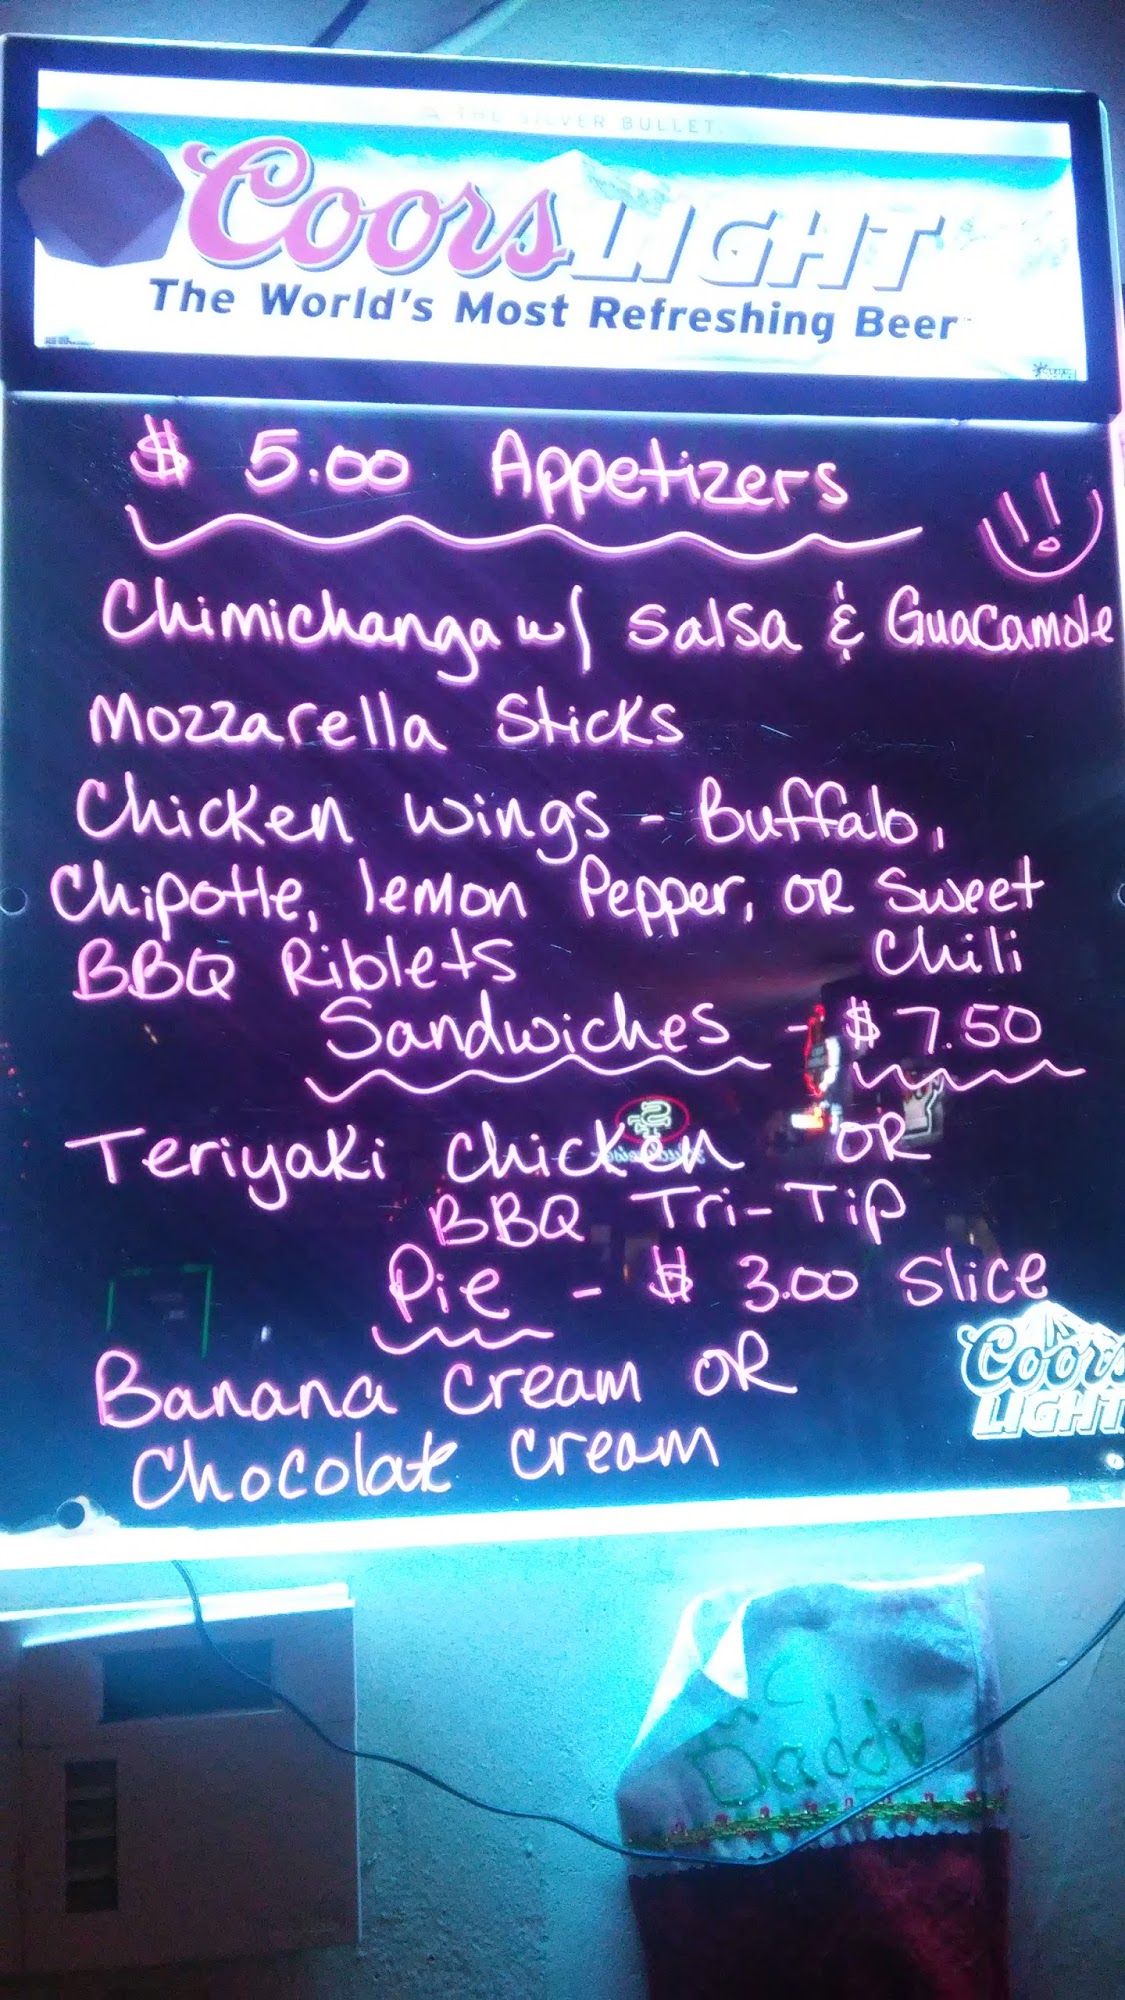 THE SILVER BULLET
Coors LIGHT
The World's Most Refreshing Beer
$ 5.00 Appetizers
Chimichanga w/ Salsa & Guacamole
Mozzarella Sticks
Chicken Wings - Buffalo,
Chipotle, lemon Pepper, OR Sweet
Chili
BBQ Riblets
Sandwiches - $ 7.50
Teriyaki Chicken OR
BBQ Tri-Tip
Pie - $ 3.00 Slice
Banana Cream OR
Chocolate Cream
Coors
LIGHT
Daddy